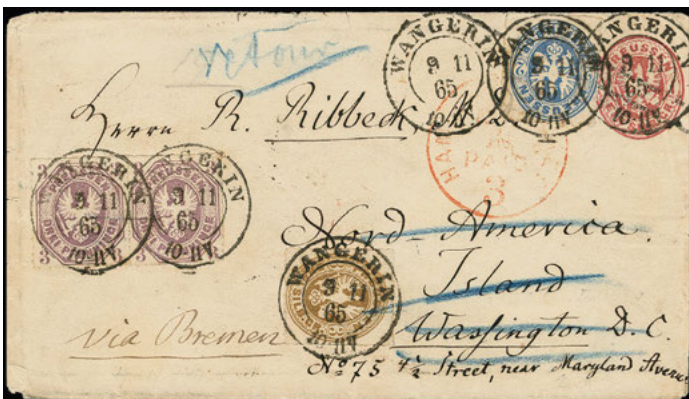 retour
WANGERIN
9 11
65
10-11V.
WANGERIN
9 11
65
10-11V.
PREUSSEN
WANGERIN
9 11
65
10-11V.
PREUSSEN
Herrn R. Ribbeck,
WANGERIN
9 11
65
10-11V.
3
DREI PFENNIGE
WANGERIN
9 11
65
10-11V.
DREI PFENNIGE
3
HAM
PA
3
Nord-America.
Island
WANGERIN
9 11
65
10-11V
via Bremen
Wassington D. C.
No 75 4½ Street, near Maryland Avenue